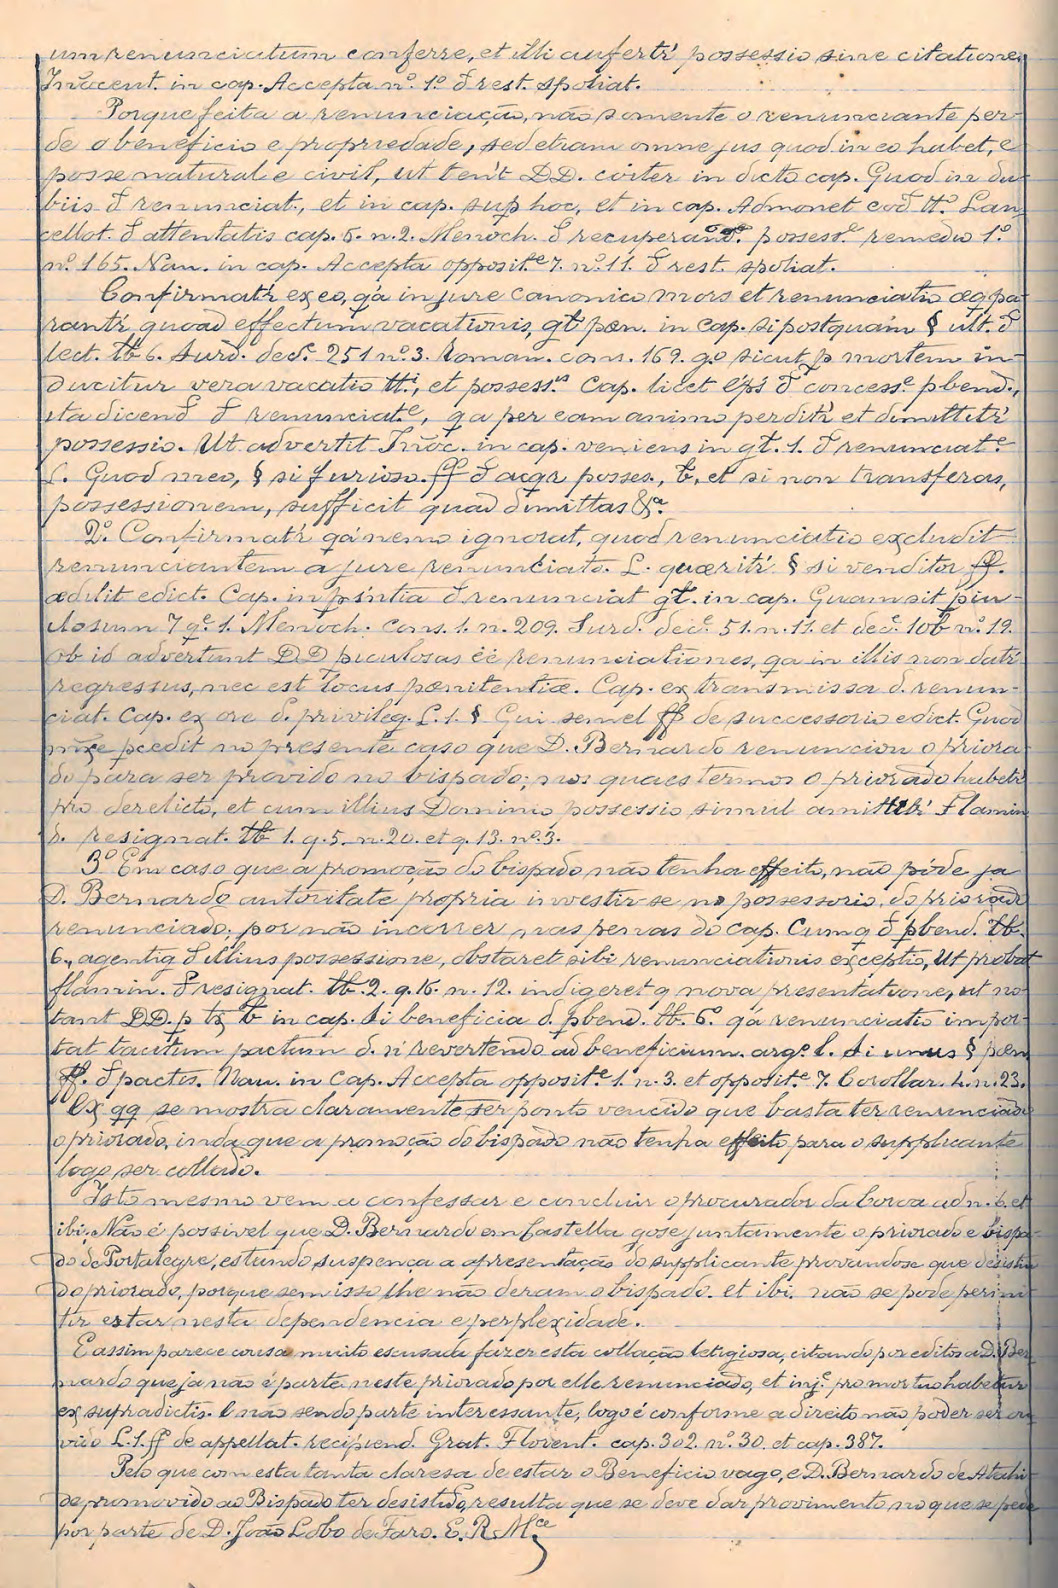 um renunciatum conferre, et illi auferri possessio sine citatione,
Innocent. in cap. Accepta nº 1º d rest. spoliat.
Porque feita a renunciação, não somente o renunciante per-
de o beneficio e propriedade, sed etiam omne jus quod in eo habet, e
posse natural e civil, ut ten't DD. cõiter in dicto cap. Quod in du-
biis d renunciat., et in cap. sup hoc, et in cap. Admonet eod ttº. Lan-
cellot. d attentatis cap. 5. n. 2. Menoch. d recuperandª possessᵉ remedio 1º
nº 165. Nau. in cap. Accepta opposit.ᵉ 7. nº 11. d rest. spoliat.
Confirmat'r ex eo, q'a in jure canonico mors et renunciatio æqpa-
rant'r quoad effectum vacationis, gt pœn. in cap. si postquam § ult. d
lect. tt 6. Surd. decˢ. 251 nº 3. Roman. cons. 169. gº sicut p mortem in-
ducitur vera vacatio ttⁱ, et possess.ⁱˢ Cap. licet ep's d concess.ᵉ pbend.,
ita dicend d renunciat.ᵉ, q a per eam animo perdit'r et dimittit'r
possessio. Ut advertit Innoc. in cap. veniens in gt. 1. d renunciat.ᵉ
L. Quod meo, § si furioso. ff d acqr posses., tt, et si non transferas,
possessionem, sufficit quod dimittas &ª.
2º. Confirmat'r q'a nemo ignorat, quod renunciatio excludit
renunciantem a jure renunciato. L. quærit'r § si venditor ff.
ædilit edict. Cap. in p's'ntia d renunciat gt. in cap. Quam sit piu-
closum 7 qᵉ. 1. Menoch. Cons. 1. n. 209. Surd. decᵉ. 51. n. 11. et decᵉ. 106 nº. 19.
ob id advertunt DD piculosas e'e renunciationes, q a in illis non dat'r
regressus, nec est locus pœnitentiæ. Cap. ex transmissa d. renun-
ciat. Cap. ex ore d. privileg. L. 1. § Qui semel ff de successorio edict. Quod
pcedit no presente caso que D. Bernardo renunciou o priora-
do para ser provido no bispado; nos quaes termos o priorado habet'r
pro derelicto, et cum illius Dominio possessio simul amittit'r Flamin
d. resignat. tt 1. q. 5. n. 20. et q. 13. nº. 3.
3º Em caso que a promoção do bispado não tenha effeito, não póde ja
D. Bernardo autoritate propria investir-se no possessorio, do priorado
renunciado; por não incorrer nas penas do cap. Cum q d pbend. tt.
6., agentiq d illius possessione, obstaret sibi renunciationis exceptio, Ut probat
flamin. d resignat. tt. 2. q. 16. n. 12. indigeret q nova presentatione, ut no-
tant DD. p tx tt in cap. Si beneficia d. pbend. tt. 6º. q'a renunciatio impor-
tat tacitum pactum d. n'i revertendo ad beneficium. argº. l. Si unus § pœn
ff. d pactis. Nau. in Cap. Accepta opposit.ᵉ 1. n. 3. et opposit.ᵉ 7. Corollar. 4. n. 23.
Ex qq se mostra claramente ser ponto vencido que basta ter renunciado
o priorado, inda que a promoção do bispado não tenha effeito para o supplicante
logo ser collado.
Isto mesmo vem a confessar e concluir o procurador da Coroa ad n. 6. et
ibi. Não é possivel que D. Bernardo em Castella gose juntamente o priorado e bispa-
do de Portalegre, estando suspença a apresentação do supplicante provandose que desistiu
do priorado, porque sem isso lhe não deram o bispado. et ibi. não se pode permi-
tir estar nesta dependencia e perplexidade.
E assim parece cousa muito escusada fazer esta collação letigiosa, citando por editos a D. Ber-
nardo que ja não é parte neste priorado por elle renunciado, et inj.ᵉ pro mortuo habetur
ex supradictis. E não sendo parte interessante, logo é conforme a direito não poder ser ou-
vido L. 1. ff de appellat. recipiend. Grat. Florent. cap. 302. nº. 30. et cap. 387.
Pelo que com esta tanta claresa de estar o Beneficio vago, e D. Bernardo de Atahi-
de promovido ao Bispado ter desistido, resulta que se deve dar provimento no que se pede
por parte de D. João Lobo de Faro. E. R. M.ᶜᵉ